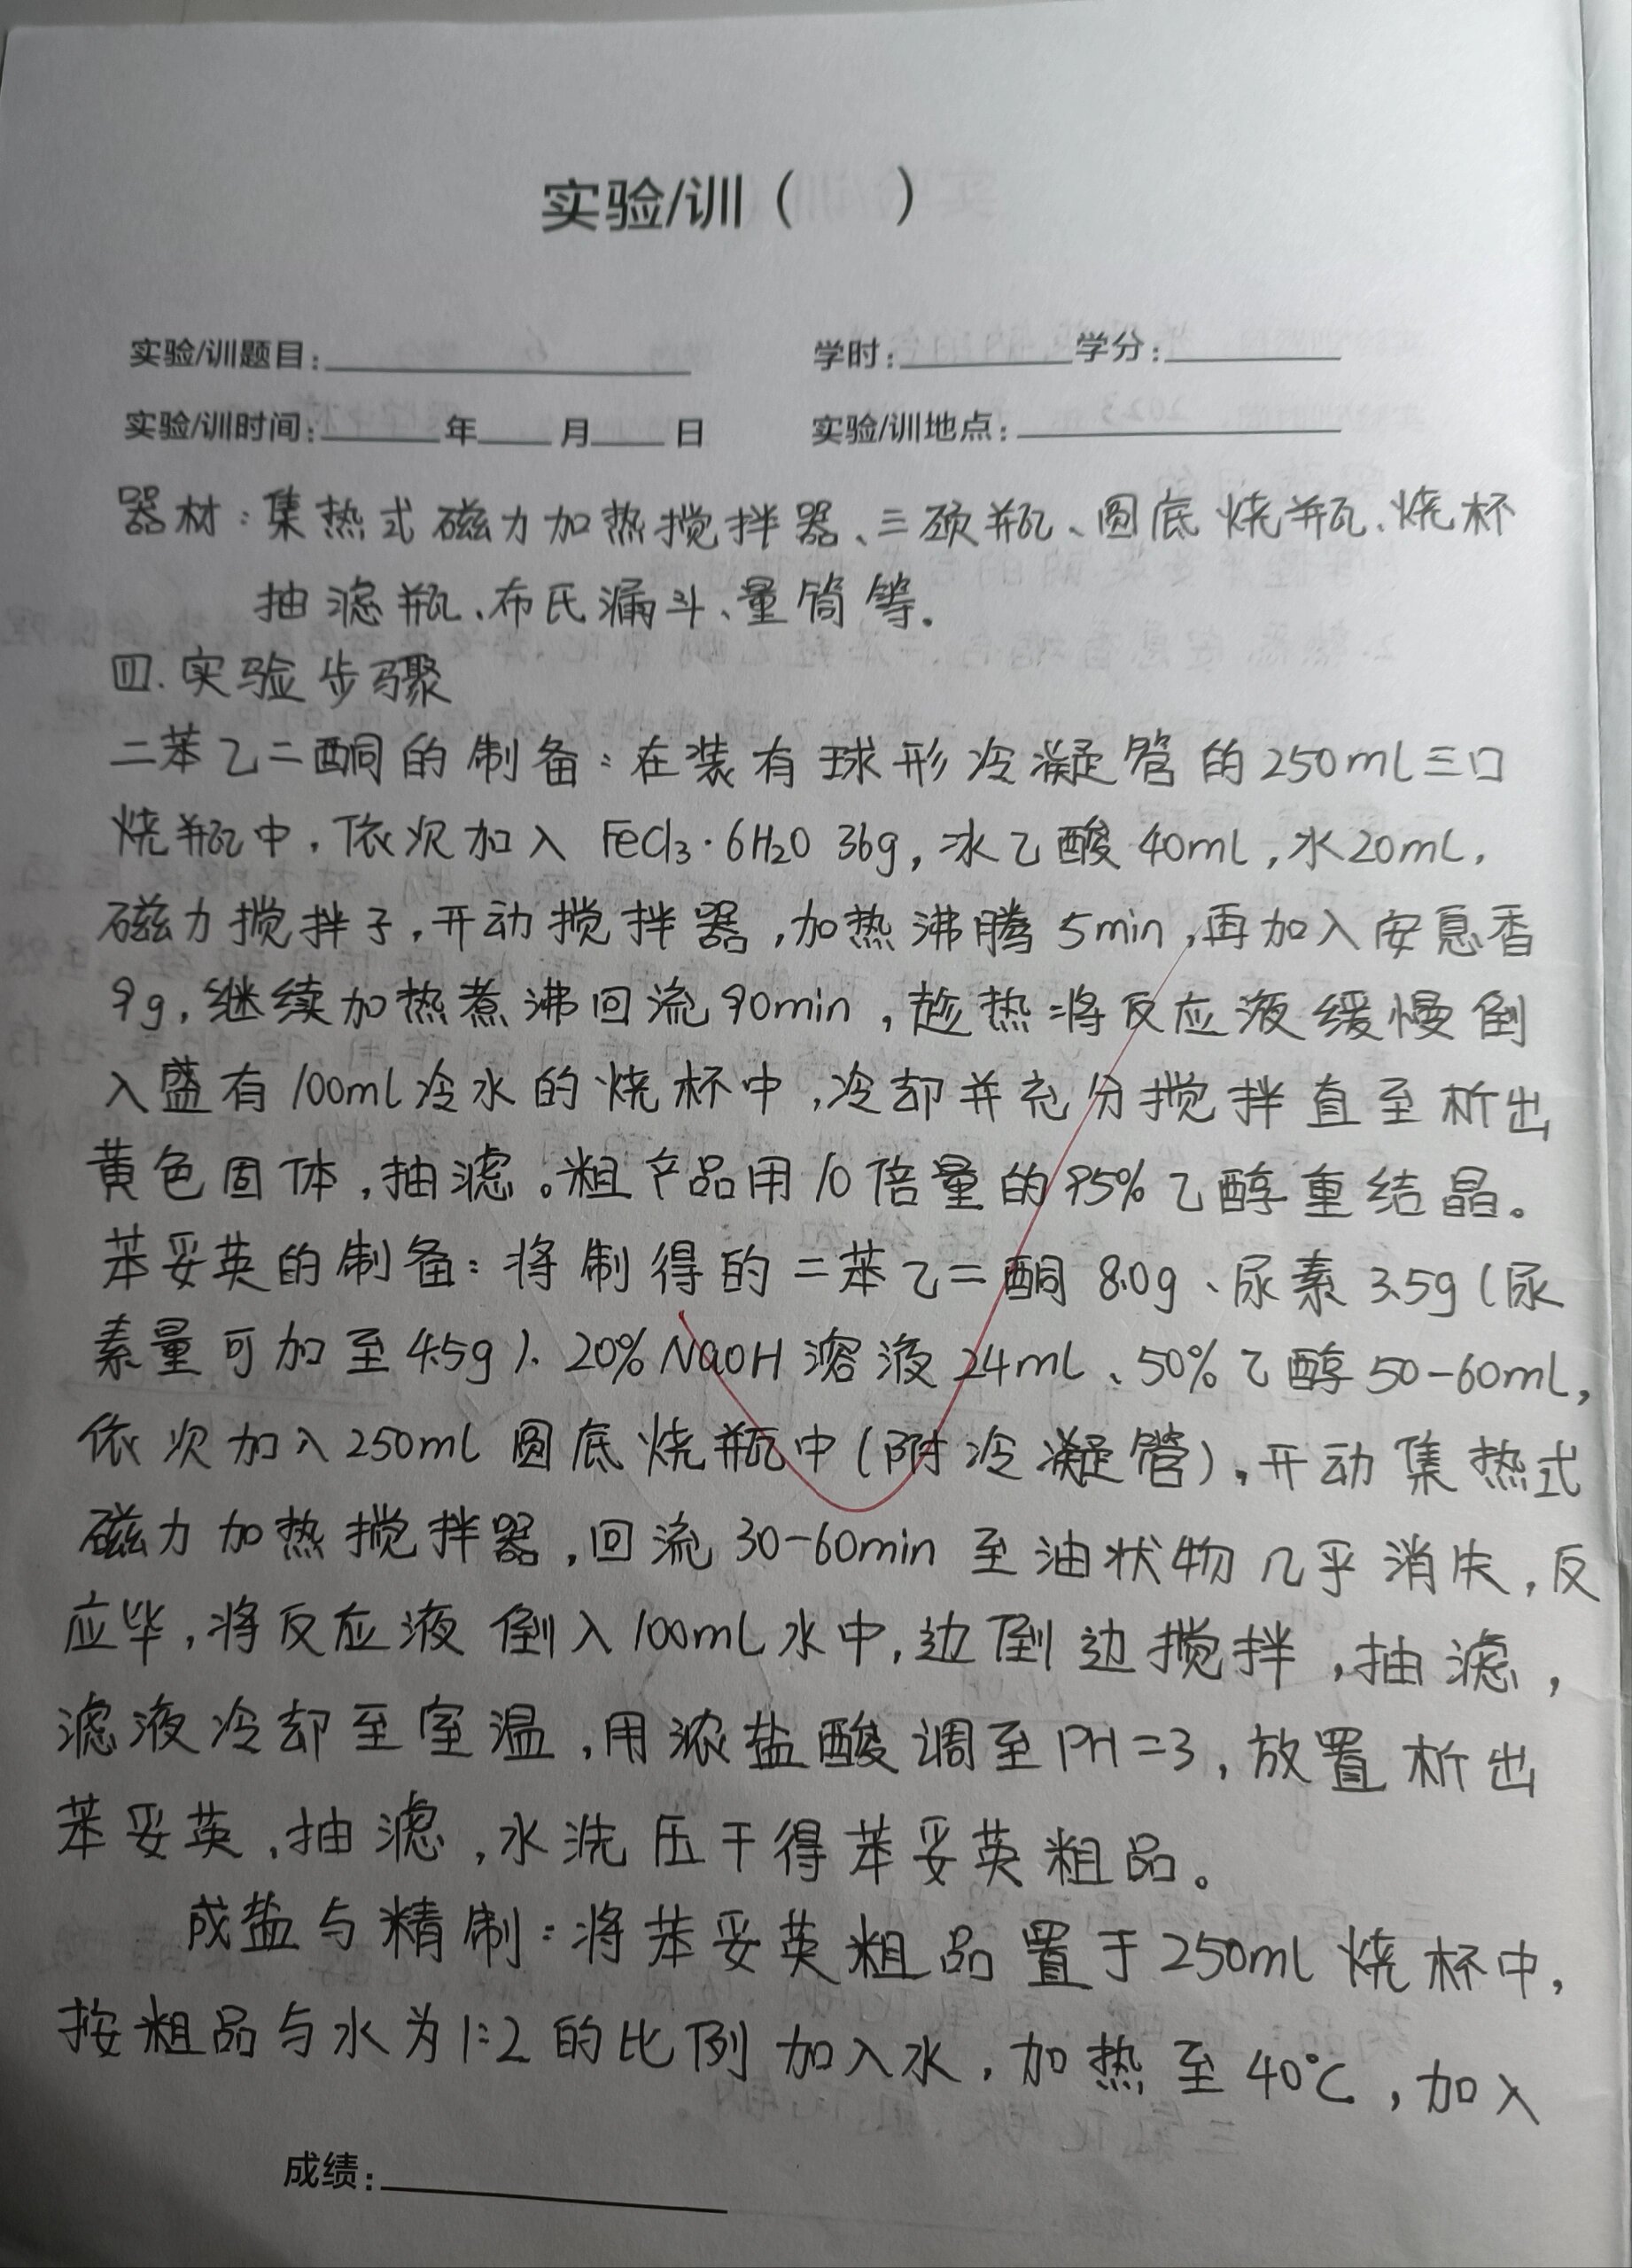 实验/训（ ）
实验/训题目： 学时： 学分：
实验/训时间： 年 月 日 实验/训地点：
器材：集热式磁力加热搅拌器、三颈瓶、圆底烧瓶、烧杯
抽滤瓶、布氏漏斗、量筒等.
四.实验步骤
二苯乙二酮的制备：在装有球形冷凝管的250ml三口
烧瓶中，依次加入 FeCl₃·6H₂O 36g，冰乙酸 40ml，水20ml，
磁力搅拌子，开动搅拌器，加热沸腾 5min，再加入安息香
9g，继续加热煮沸回流90min，趁热将反应液缓慢倒
入盛有100ml冷水的烧杯中，冷却并充分搅拌直至析出
黄色固体，抽滤。粗产品用10倍量的95%乙醇重结晶。
苯妥英的制备：将制得的二苯乙二酮 8.0g、尿素 3.5g（尿
素量可加至 4.5g）、20%NaOH溶液24ml、50%乙醇50-60ml，
依次加入250ml圆底烧瓶中（附冷凝管），开动集热式
磁力加热搅拌器，回流30-60min至油状物几乎消失，反
应毕，将反应液倒入100ml水中，边倒边搅拌，抽滤，
滤液冷却至室温，用浓盐酸调至PH=3，放置析出
苯妥英，抽滤，水洗压干得苯妥英粗品。
成盐与精制：将苯妥英粗品置于250ml烧杯中，
按粗品与水为1:2的比例加入水，加热至40℃，加入
成绩：